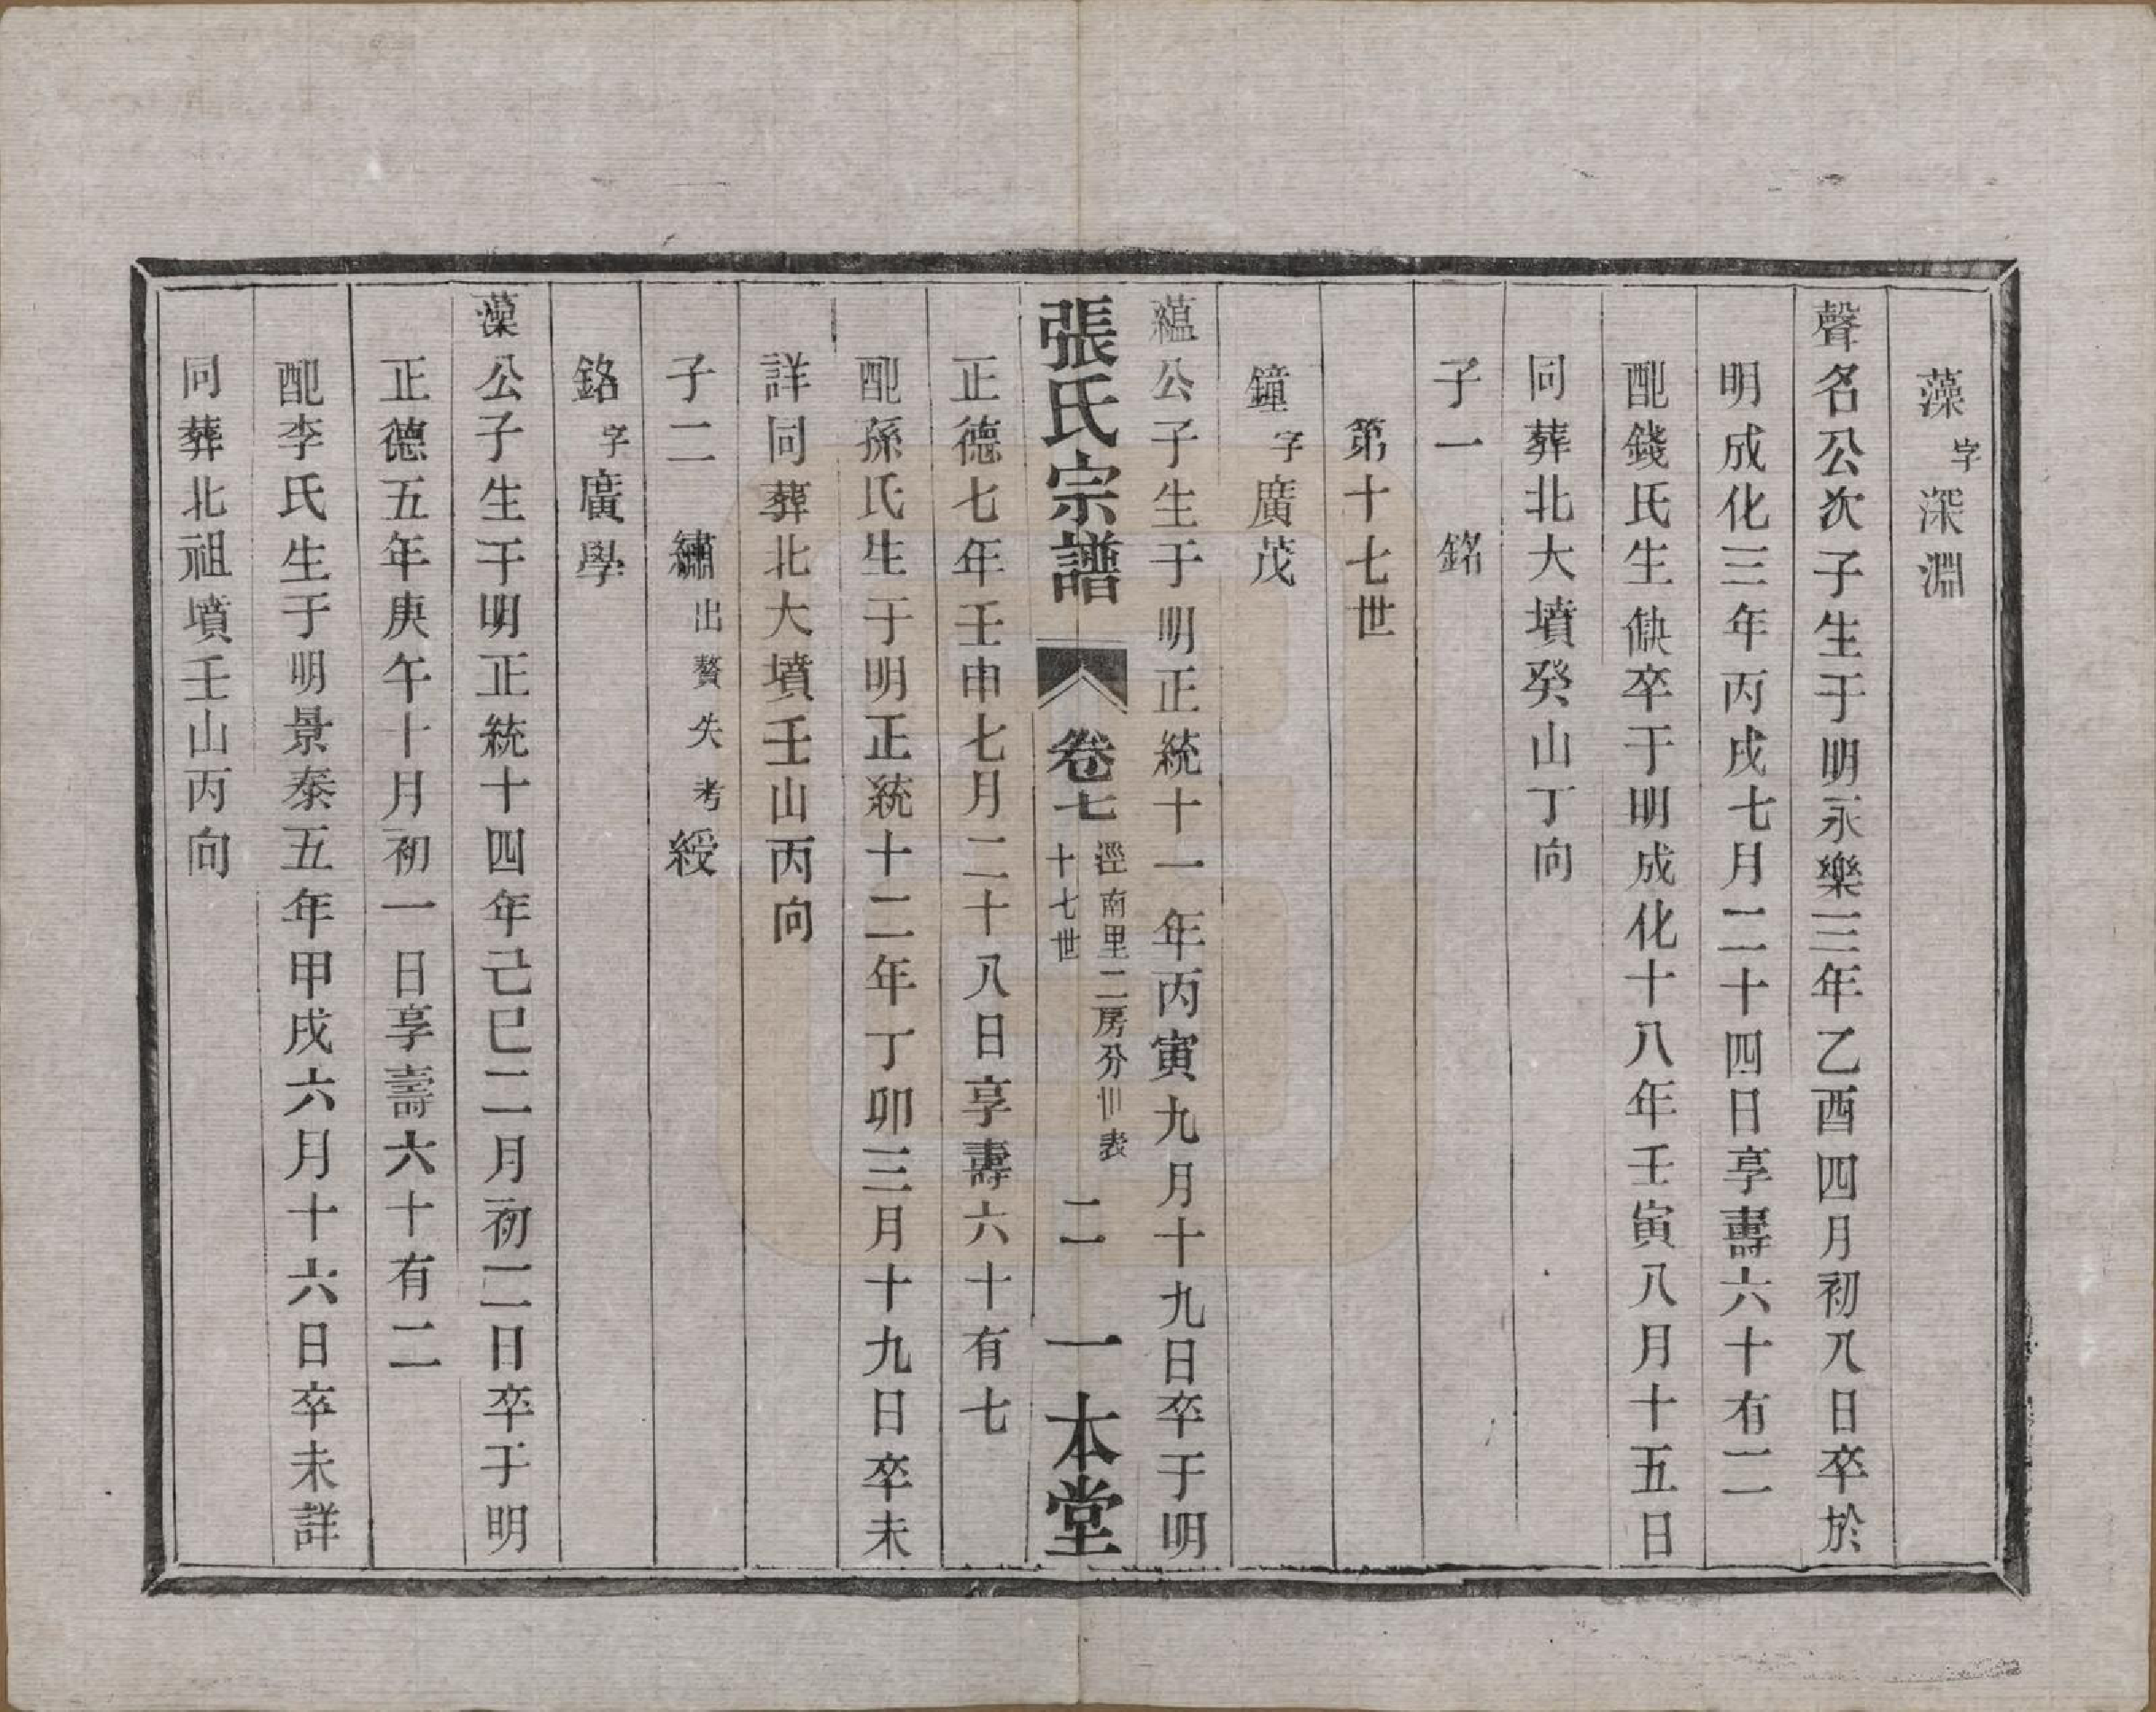 藻字深淵
聲名公次子生于明永樂三年乙酉四月初八日卒於
明成化三年丙戌七月二十四日享壽六十有二
配錢氏生缺卒于明成化十八年壬寅八月十五日
同葬北大墳癸山丁向
子一　銘
第十七世
鐘字廣茂
蘊公子生于明正統十一年丙寅九月十九日卒于明
張氏宗譜　卷七　涇南里二房分世表　十七世　二　一本堂
正德七年壬申七月二十八日享壽六十有七
配孫氏生于明正統十二年丁卯三月十九日卒未
詳同葬北大墳壬山丙向
子二　繡出贅失考　綬
銘字廣學
藻公子生于明正統十四年己巳二月初二日卒于明
正德五年庚午十月初一日享壽六十有二
配李氏生于明景泰五年甲戌六月十六日卒未詳
同葬北祖墳壬山丙向